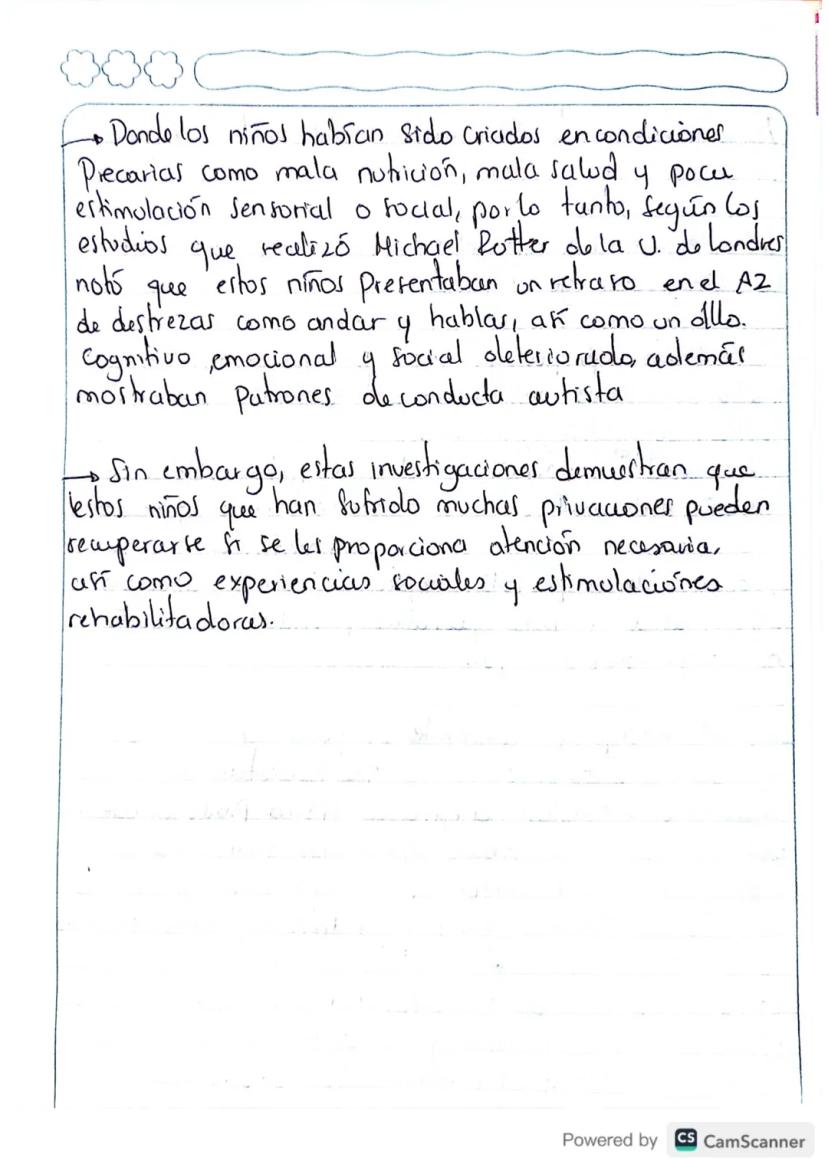 → Donde los niños habían sido criados en condiciones
Precarias como mala nutrición, mala salud y poca
estimulación sensorial o social, por lo tanto, según los
estudios que realizó Michael Rotter de la U. de Londres
notó que estos niños Presentaban un retraso en el AZ
de destrezas como andar y hablar, así como un dllo.
Cognitivo, emocional y social deteriorado, además
mostraban Patrones de conducta autista
→ Sin embargo, estas investigaciones demuestran que
estos niños que han sufrido muchas privaciones pueden
recuperarse si se les proporciona atención necesaria,
así como experiencias sociales y estimulaciónes
rehabilitadoras.
Powered by CS CamScanner